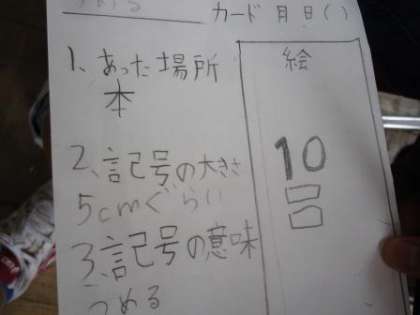 カード 月 日 ( )
1、あった場所
本
絵
2、記号の大きさ
5cmぐらい
10
3、記号の意味
つめる